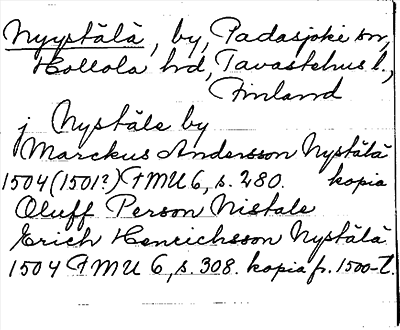 Nyystälä, by, Padasjoki sn,
Hollola hd, Tavastehus l.,
Finland
j Nystäle by
Marckus Andersson Nystälä
1504 (1501?) FMU 6, s. 280. kopia
Oluff Person Nistale
Erich Henrichsson Nystälä
1504 FMU 6, s. 308. kopia fr. 1500-t.